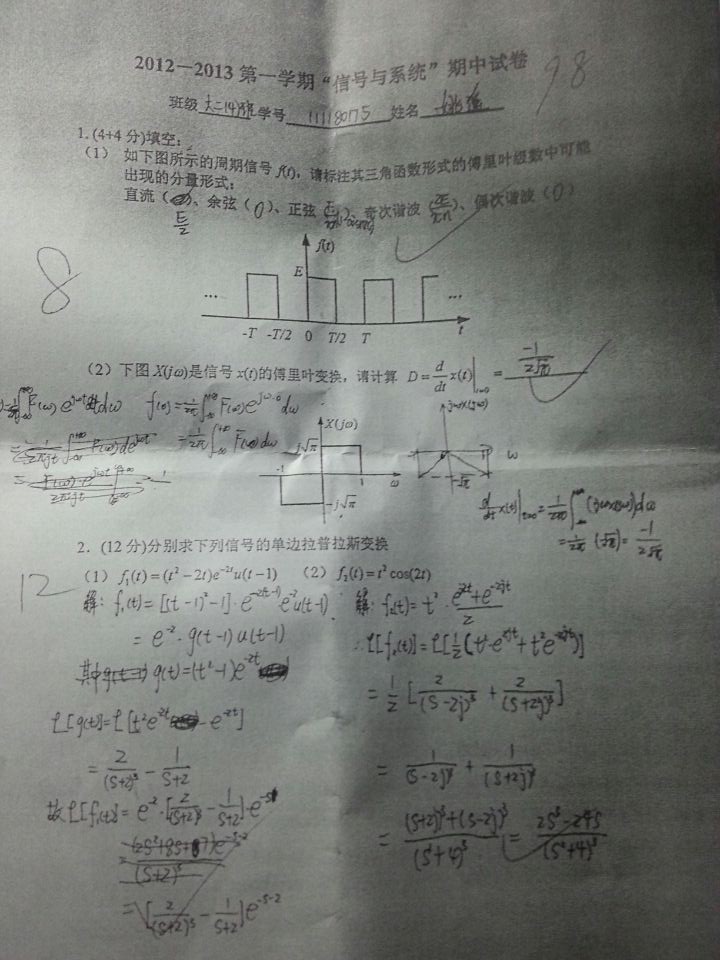 2012－2013 第一学期“信号与系统”期中试卷
98
班级 学号 11118075 姓名
1. (4+4 分)填空：
（1） 如下图所示的周期信号 f(t)，请标注其三角函数形式的傅里叶级数中可能
出现的分量形式：
直流（ ）、余弦（0）、正弦（ ）、奇次谐波（ ）、偶次谐波（0）
E/2
8
f(t)
E
... ...
-T -T/2 0 T/2 T t
（2）下图 X(jω)是信号 x(t)的傅里叶变换，请计算 D = d/dt x(t)|t=0 = -1/(2√π)
f(0) = 1/2π ∫_{-∞}^{+∞} F(ω) e^{jω·0} dω
= 1/2π ∫_{-∞}^{+∞} F(ω) dω
X(jω)
j√π
-1 1 ω
-j√π
jωX(jω)
ω
-√π
d/dt x(t)|t=0 = 1/2π ∫_{-∞}^{∞} (jωX(jω)) dω
= 1/2π (√π) = -1/(2√π)
2．(12 分)分别求下列信号的单边拉普拉斯变换
12
（1） f₁(t) = (t² − 2t)e^{−2t}u(t−1) （2） f₂(t) = t² cos(2t)
解: f₁(t) = [(t-1)²-1]·e^{-2(t-1)}·e^{-2}u(t-1)
= e^{-2}·g(t-1)u(t-1)
其中 g(t)=(t²-1)e^{-2t}
L[g(t)] = L[t²e^{-2t} - e^{-2t}]
= 2/(S+2)³ - 1/(S+2)
故 L[f₁(t)] = e^{-2}·[2/(S+2)³ - 1/(S+2)]·e^{-S}
= [2/(S+2)³ - 1/(S+2)]e^{-S-2}
解: f₂(t) = t²·(e^{2jt}+e^{-2jt})/2
∴ L[f₂(t)] = L[1/2(t²·e^{2jt}+t²e^{-2jt})]
= 1/2 [2/(S-2j)³ + 2/(S+2j)³]
= 1/(S-2j)³ + 1/(S+2j)³
= ((S+2j)³+(S-2j)³)/(S²+4)³ = (2S³-24S)/(S²+4)³